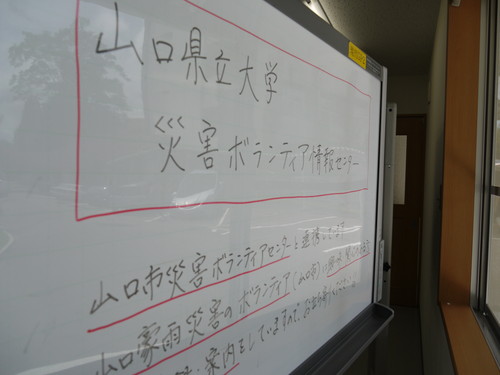 山口県立大学
災害ボランティア情報センター
山口市災害ボランティアセンターと連携しています
山口豪雨災害のボランティア(山口市)
案内をしていますので、